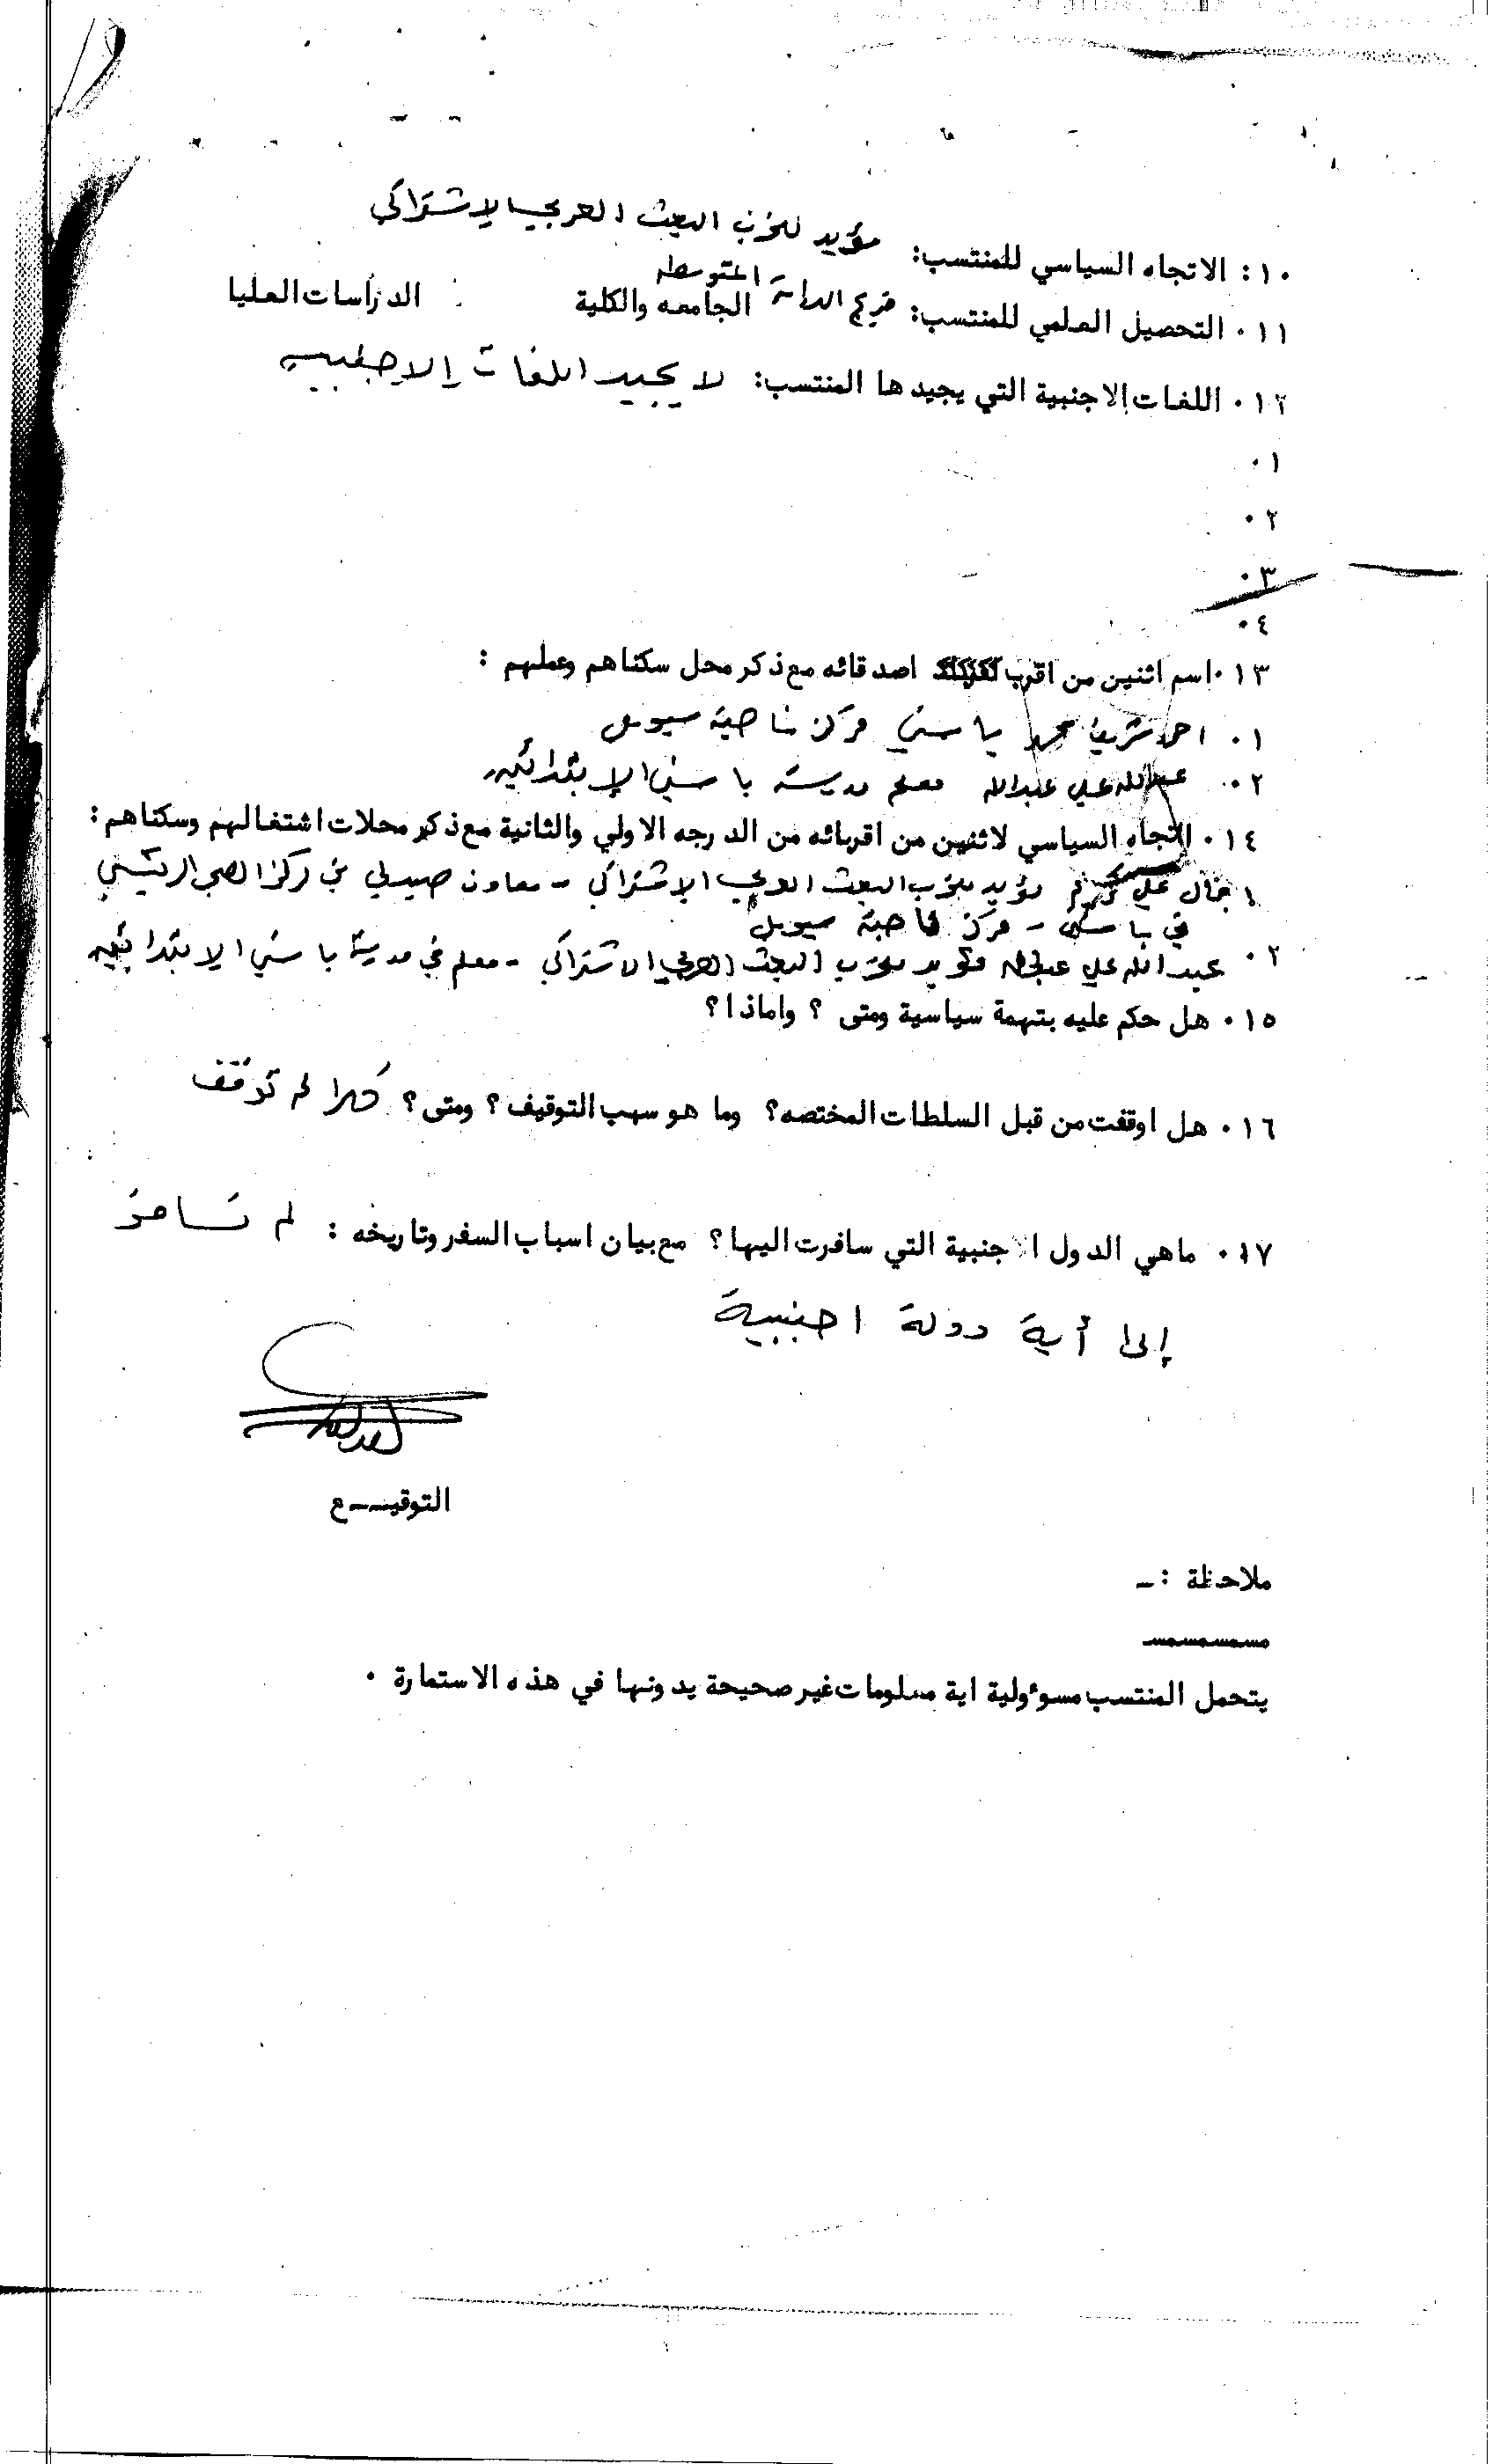 ١٠: الاتجاه السياسي للمنتسب: مؤيد لحزب البعث العربي الاشتراكي
١١٠ التحصيل العلمي للمنتسب: خريج الدراسة المتوسطه الجامعه والكلية : الدراسات العليا
١٢٠ اللغات الاجنبية التي يجيدها المنتسب: لا يجيد اللغات الاجنبيه
٠١
٠٢
٠٣
٠٤
١٣٠ اسم اثنين من اقرب اصدقائه مع ذكر محل سكناهم وعملهم :
٠١ احمد شريف محمد ناحية
٠٢ عبدالله علي عبدالله معلم مدرسة الابتدائيه
١٤٠ اتجاه السياسي لاثنين من اقربائه من الدرجه الاولي والثانية مع ذكر محلات اشتغالهم وسكناهم :
١ علي مؤيد لحزب البعث العربي الاشتراكي - معاون صيدلي في مركز الصحي الرئيسي
في - مركز ناحية
٠٢ عبدالله علي عبدالله مؤيد لحزب البعث العربي الاشتراكي - معلم في مدرسة الابتدائيه
١٥٠ هل حكم عليه بتهمة سياسية ومتى ؟ واماذا ؟
١٦٠ هل اوقفت من قبل السلطات المختصه؟ وما هو سبب التوقيف ؟ ومتى ؟ كلا لم توقف
١٧٠ ماهي الدول الاجنبية التي سافرت اليها ؟ مع بيان اسباب السفر وتاريخه : لم تسافر
إلى أية دولة اجنبية
التوقيـــع
ملاحظة :ـ
يتحمل المنتسب مسوءولية اية معلومات غير صحيحة يدونها في هذه الاستمارة ٠